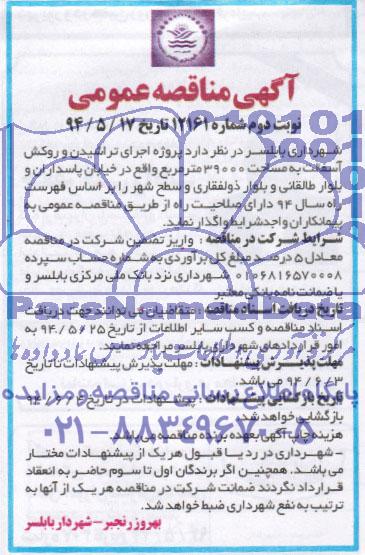 آگهی مناقصه عمومی
نوبت دوم شماره ۱۲۱۶۱ تاریخ ۹۴/۵/۱۷
شهرداری بابلسر در نظر دارد پروژه اجرای تراشیدن و روکش
آسفالت به مساحت ۳۹۰۰۰ مترمربع واقع در خیابان پاسداران و
بلوار طالقانی و بلوار ذولفقاری و سطح شهر را بر اساس فهرست
بهاء سال ۹۴ دارای صلاحیت راه از طریق مناقصه عمومی به
پیمانکاران واجد شرایط واگذار نماید.
شرایط شرکت در مناقصه : واریز تضمین شرکت در مناقصه
معادل ۵ درصد مبلغ کل برآوردی به شماره حساب سپرده
۰۱۰۶۸۱۶۵۷۰۰۰۸ شهرداری نزد بانک ملی مرکزی بابلسر و
یا ضمانت نامه بانکی معتبر
تاریخ دریافت اسناد مناقصه : متقاضیان می توانند جهت دریافت
اسناد مناقصه و کسب سایر اطلاعات از تاریخ ۹۴/۵/۲۵ به
امور قراردادهای شهرداری بابلسر مراجعه نمایند.
مهلت پذیرش پیشنهادات : مهلت پذیرش پیشنهادات تا تاریخ
۹۴/۶/۳ می باشد.
تاریخ بازگشایی پیشنهادات : پیشنهادات در تاریخ
بازگشایی خواهد شد.
هزینه چاپ آگهی بعهده برنده مناقصه می باشد.
- شهرداری در رد یا قبول هر یک از پیشنهادات مختار
می باشد. همچنین اگر برندگان اول تا سوم حاضر به انعقاد
قرارداد نگردند ضمانت شرکت در مناقصه هر یک از آنها به
ترتیب به نفع شهرداری ضبط خواهد شد.
بهروز رنجبر - شهردار بابلسر
ParsNamadData
پایگاه اطلاع رسانی مناقصه و مزایده
۰۲۱-۸۸۳۴۹۶۷۰-۵